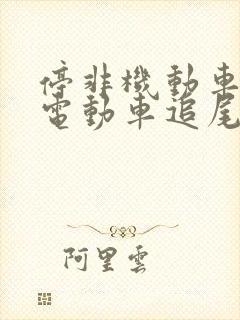 停非機動車
電動車追尾
阿里雲